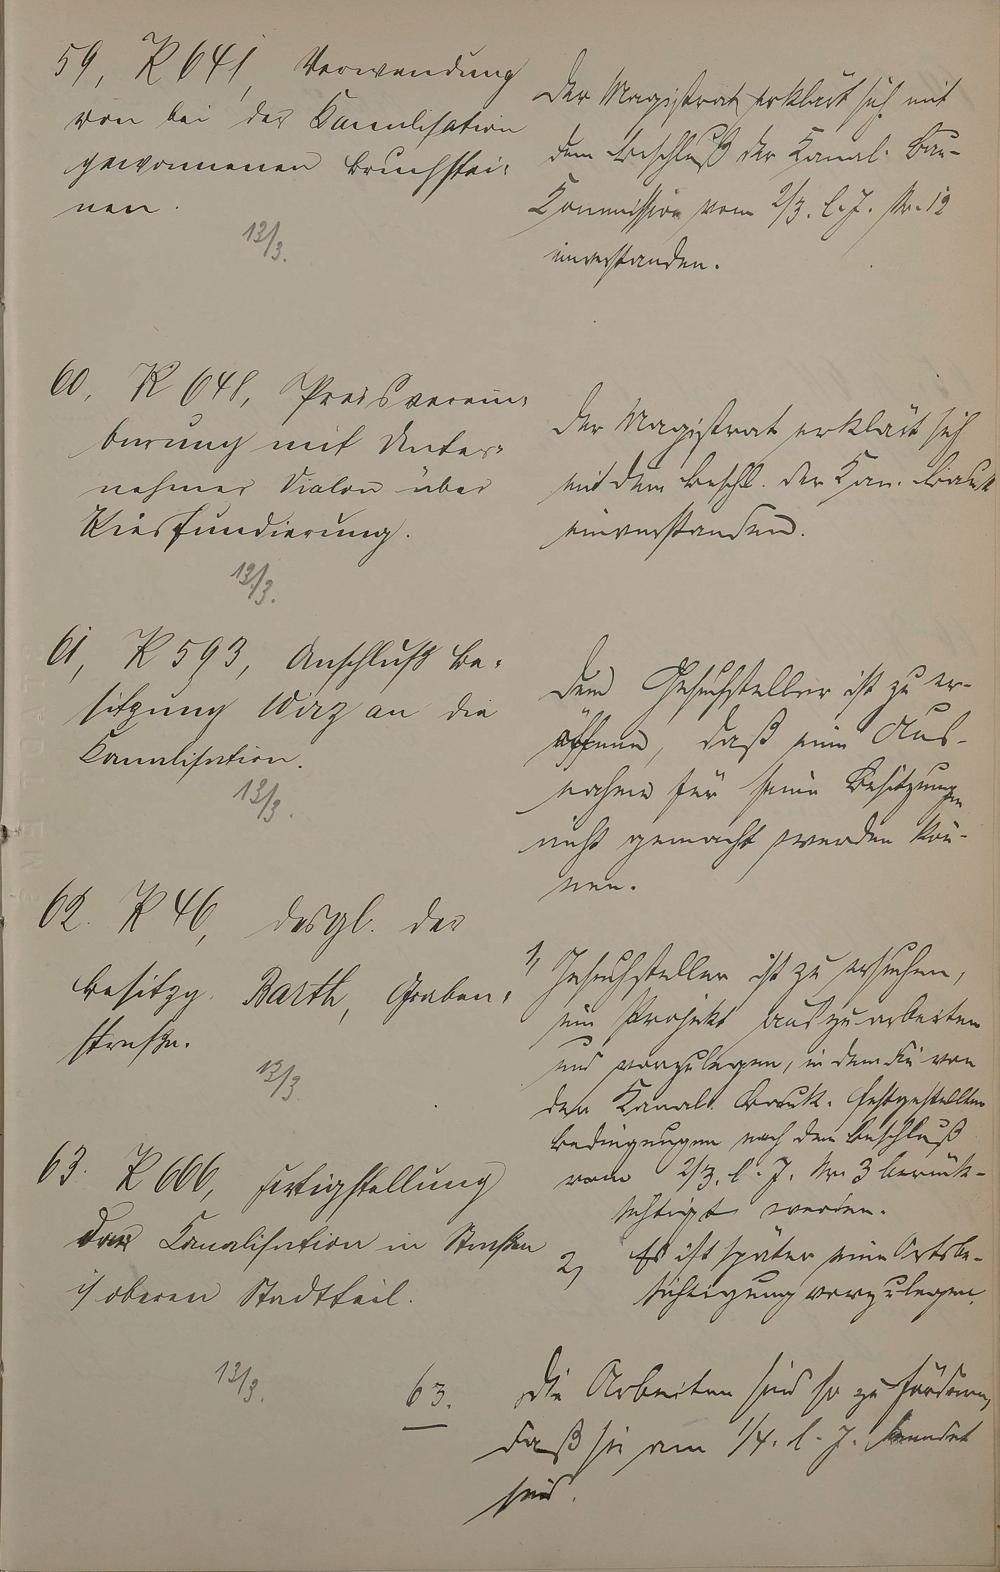 59, K 641, Verwendung
von bei der Kanalisation
gewonnenen Bruchstei-
nen.
13/3.
Der Magistrat erklärt sich mit
dem Beschluß der Kanal. Bau-
Kommission vom 2/3. l. J. Nr. 12
einverstanden.
60, K 648, Preisverein-
barung mit Unter-
nehmer Vialon über
Kiesfundierung.
13/3.
Der Magistrat erklärt sich
mit dem Beschl. der Kan. Bauk
einverstanden.
61, K 593, Anschluß Be-
sitzung Wirz an die
Kanalisation.
13/3.
Dem Gesuchsteller ist zu er-
öffnen, daß eine Aus-
nahme für seine Besitzungen
nicht gemacht werden kön-
nen.
62. K 46, desgl. der
Besitzg. Barth, Graben-
straße.
13/3
1, Gesuchsteller ist zu ersuchen,
ein Projekt auszuarbeiten
und vorzulegen, in dem die von
der Kanal. Bauk. festgestellten
Bedingungen nach dem Beschluß
vom 2/3. l. J. Nr. 3 berück-
sichtigt werden.
2, Es ist später eine Ortsbe-
sichtigung vorzulegen.
63. K 666, Fertigstellung
der Kanalisation in Straßen
i/ oberen Stadtteil.
13/3.
63. Die Arbeiten sind so zu fördern,
daß sie am 1/4. l. J. beendet
sind.